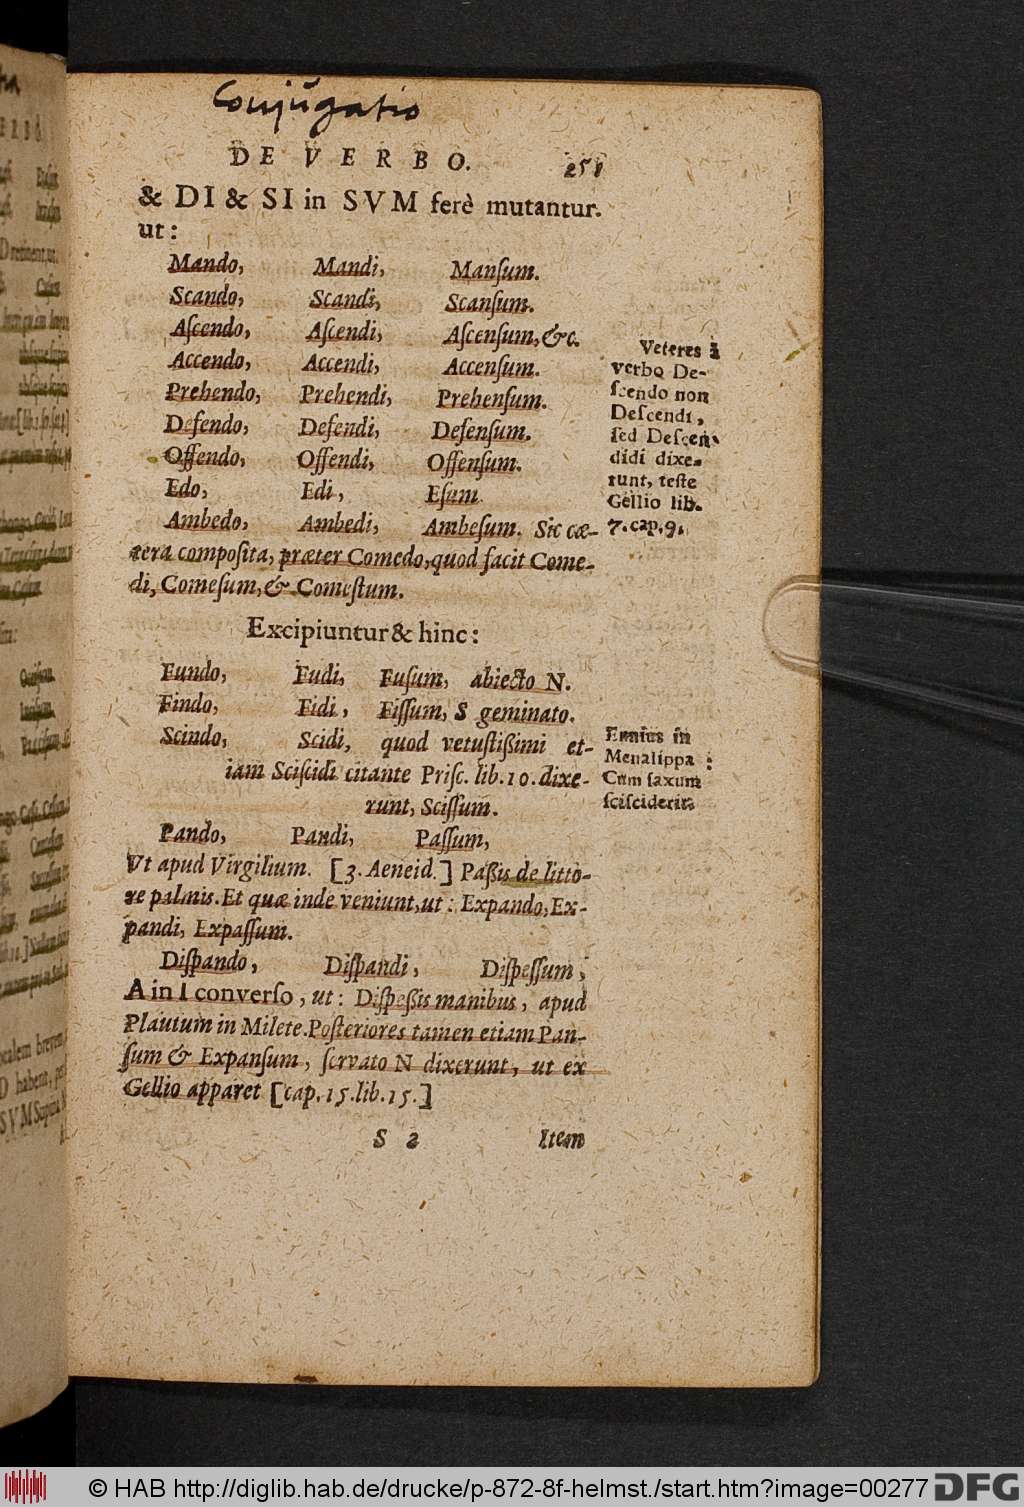 Conjugatio
DE VERBO. 251
& DI & SI in SVM ferè mutantur.
ut:
Mando, Mandi, Manſum.
Scando, Scandi, Scanſum.
Aſcendo, Aſcendi, Aſcenſum, &c.
Accendo, Accendi, Accenſum.
Prehendo, Prehendi, Prehenſum.
Defendo, Defendi, Defenſum.
Offendo, Offendi, Offenſum.
Edo, Edi, Eſum
Ambedo, Ambedi, Ambeſum. Sic cæ-
tera compoſita, præter Comedo, quod facit Come-
di, Comeſum, & Comeſtum.
Veteres à
verbo De-
ſcendo non
Deſcendi,
ſed Deſcen-
didi dixe-
runt, teſte
Gellio lib.
7. cap. 9.
Excipiuntur & hinc:
Fundo, Fudi, Fuſum, abiecto N.
Findo, Fidi, Fiſſum, S geminato.
Scindo, Scidi, quod vetuſtißimi et-
iam Sciſcidi citante Priſc. lib. 10. dixe-
runt, Sciſſum.
Ennius in
Menalippa:
Cum ſaxum
ſciſciderit.
Pando, Pandi, Paſſum,
Vt apud Virgilium. [3. Aeneid.] Paßis de litto-
re palmis. Et quæ inde veniunt, ut: Expando, Ex-
pandi, Expaſſum.
Diſpando, Diſpandi, Diſpeſſum,
A in I converſo, ut: Diſpeßis manibus, apud
Plautum in Milete. Poſteriores tamen etiam Pan-
ſum & Expanſum, ſervato N dixerunt, ut ex
Gellio apparet [cap. 15. lib. 15.]
S 2 Item
© HAB http://diglib.hab.de/drucke/p-872-8f-helmst./start.htm?image=00277 DFG